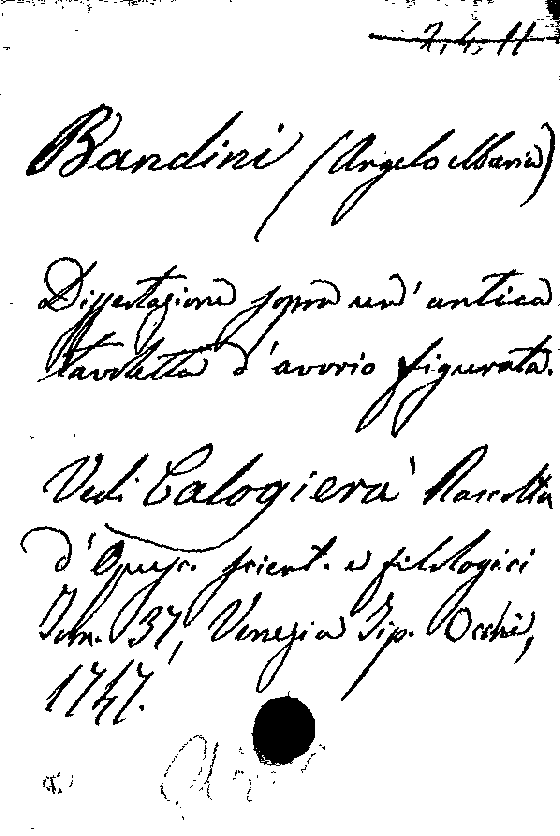 2.4.11
Bandini (Angelo Maria)
Dissertazione sopra un' antica
tavoletta d'avorio figurata.
Vedi Calogierà Raccolta
d'Opusc. scient. e filologici
Tom. 37, Venezia Tip. Occhi,
1747.